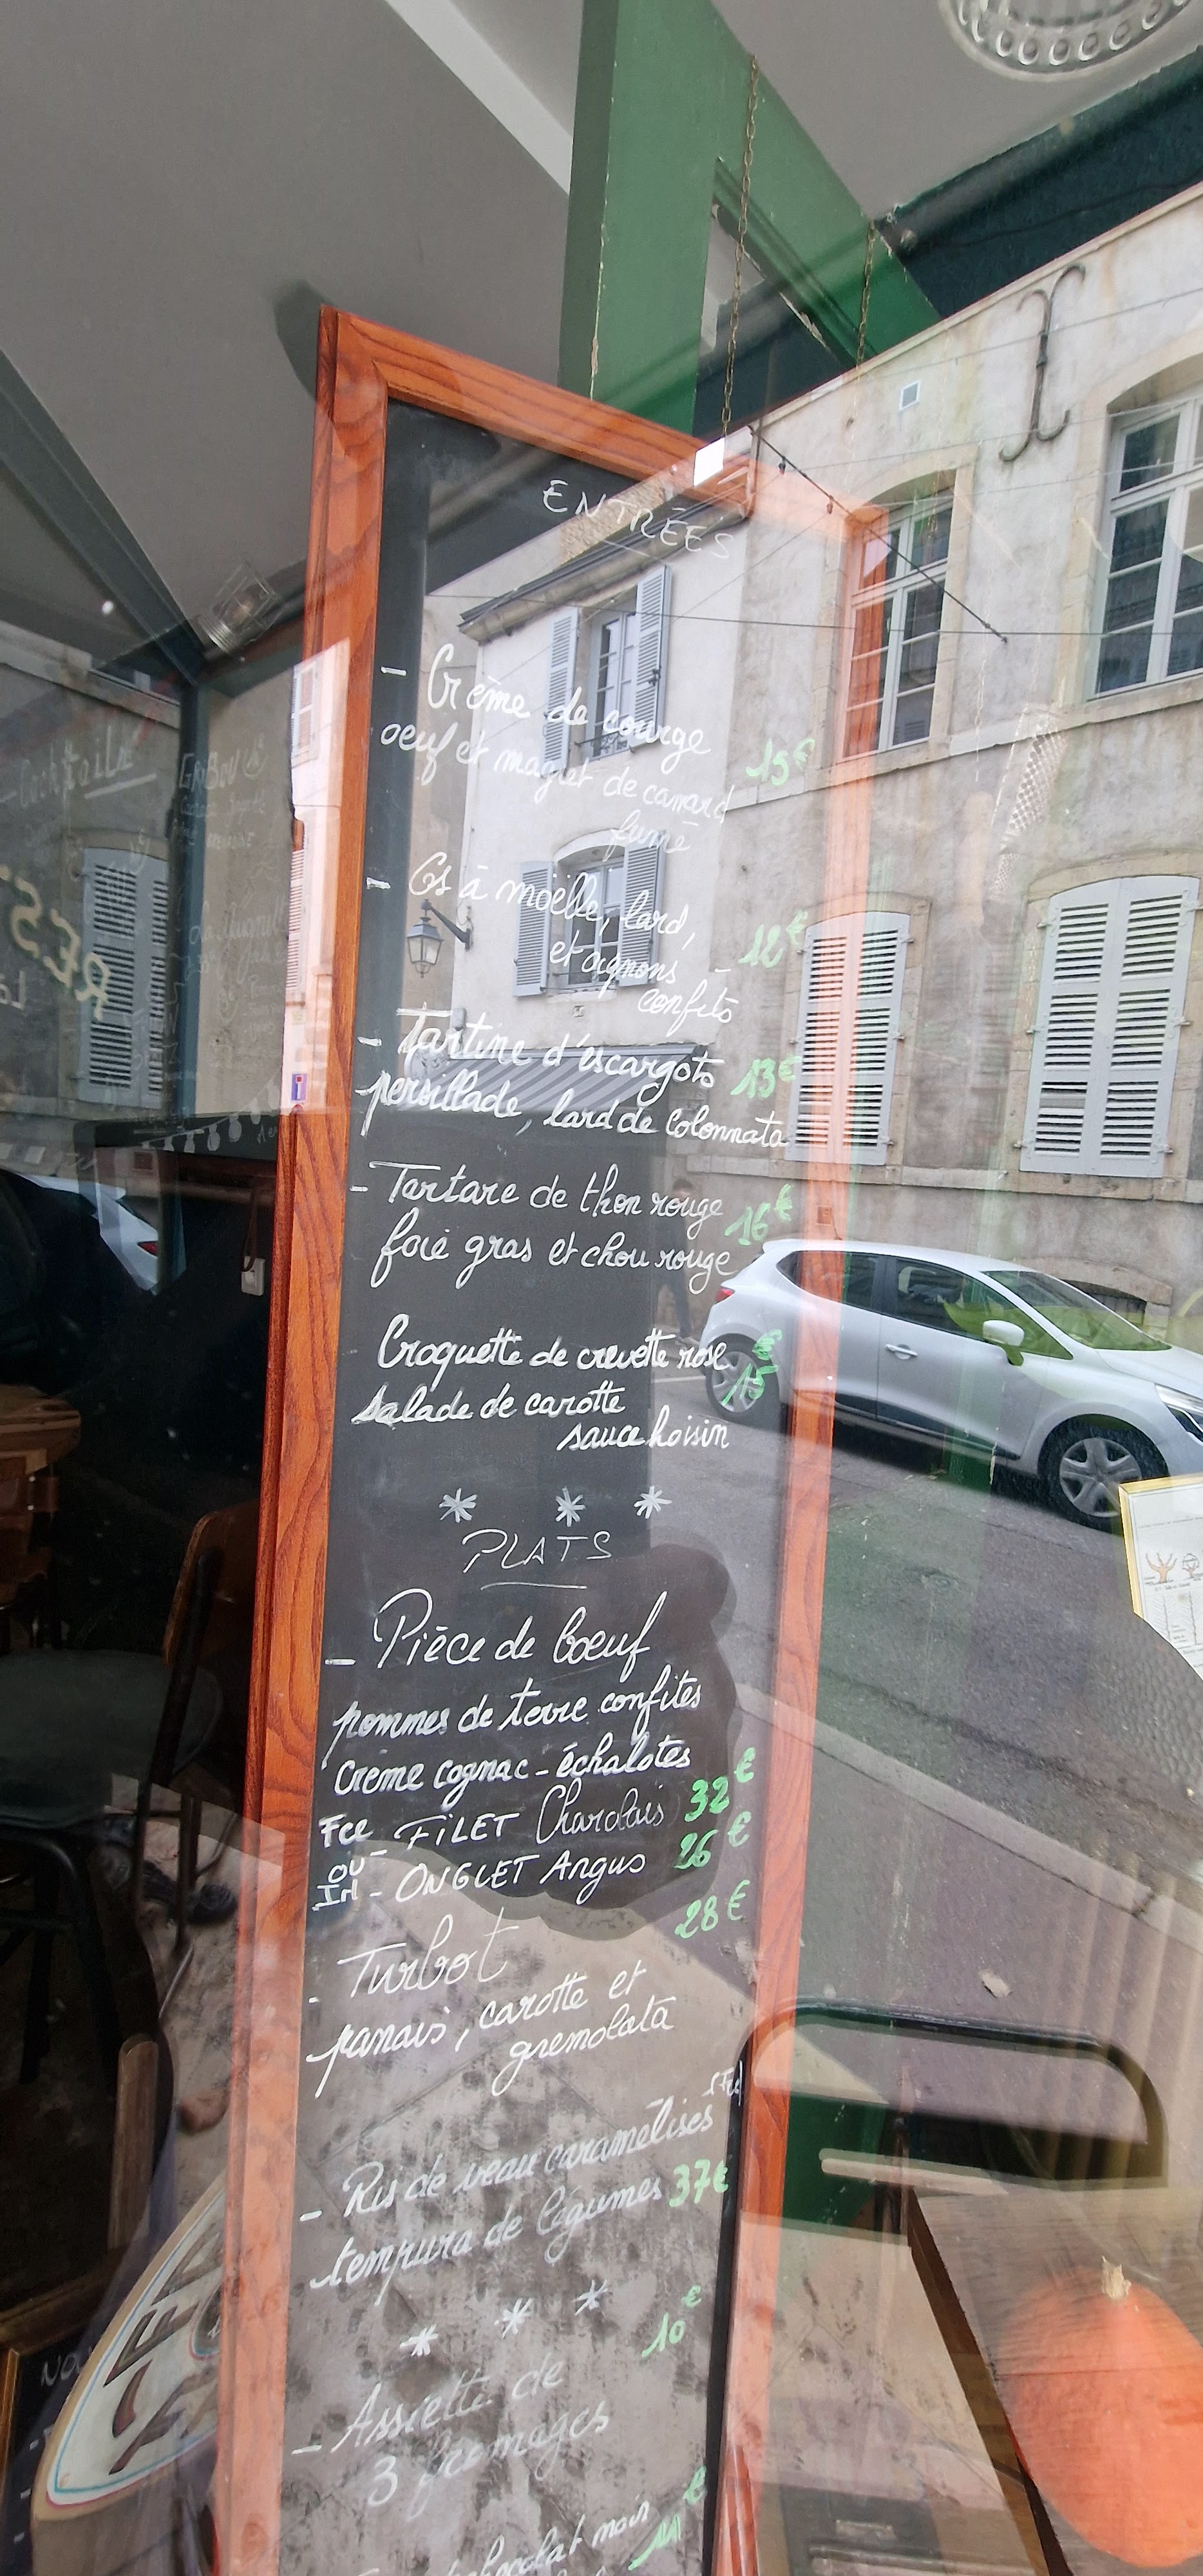 ENTRÉES
- Crème de courge
oeuf et magret de canard 15€
fumé
- Os à moëlle, lard, 12€
et oignons
confits
- Tartine d'escargots 13€
persillade, lard de Colonnata
- Tartare de thon rouge 16€
foie gras et chou rouge
Croquette de crevette rose 15€
salade de carotte
sauce hoisin
* * *
PLATS
- Pièce de boeuf
pommes de terre confites
Crème cognac - échalotes
Fce - FILET Charolais 32€
ou
Irl - ONGLET Angus 26€
- Turbot 28€
panais, carotte et
gremolata
- Ris de veau caramélisés
tempura de légumes 37€
* * *
- Assiette de 10€
3 fromages
chocolat noir
Cocktails
RES